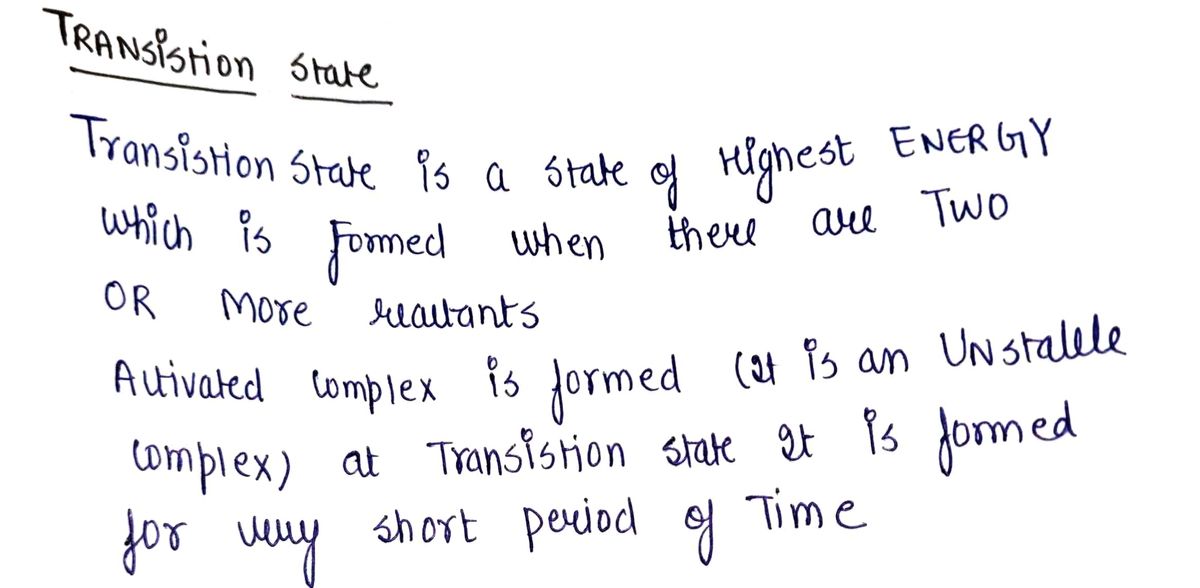 TRANSistion State
Transistion State is a state of Highest ENERGY
which is Formed when there are TWO
OR More reactants
Activated complex is formed (It is an UNstable
complex) at Transistion state It is formed
for very short period of Time